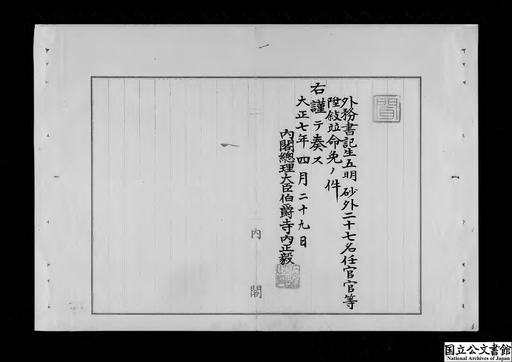 外務書記生五明砂外二十七名任官官等
陞敍竝命免ノ件
右謹テ奏ス
大正七年四月二十九日
内閣總理大臣伯爵寺内正毅
内閣
国立公文書館
National Archives of Japan